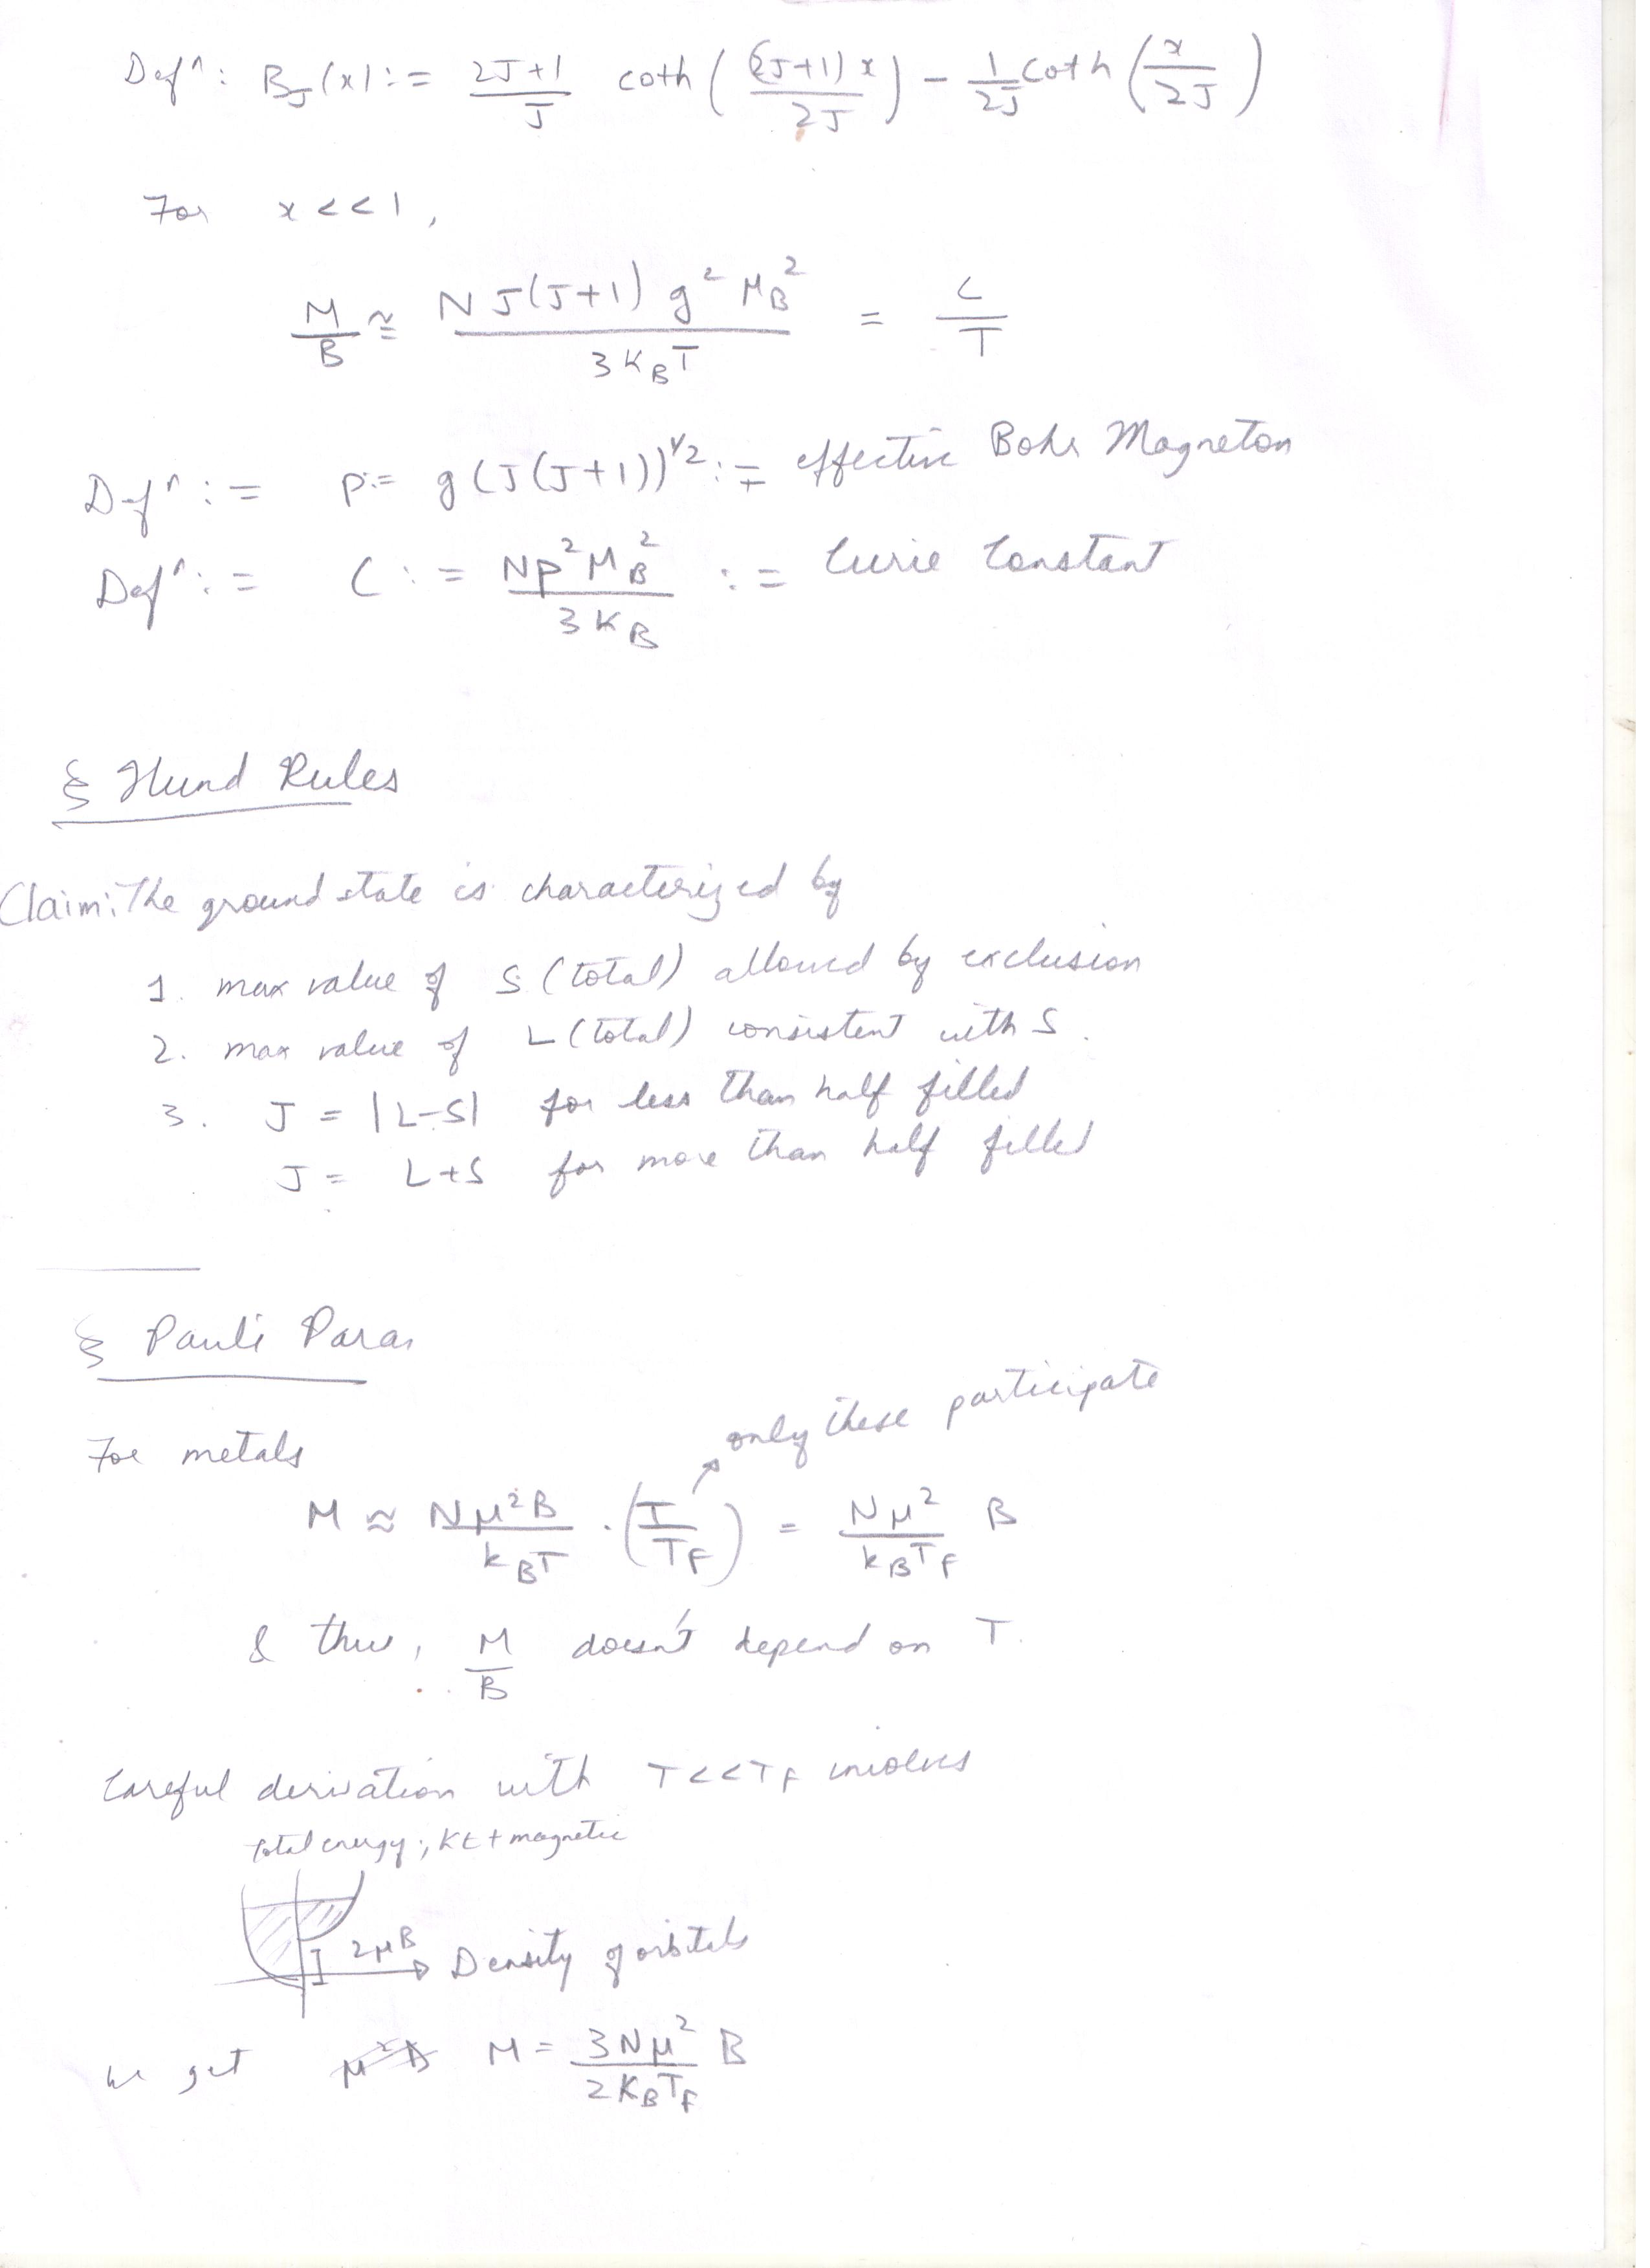 Defⁿ: B_J(x) := (2J+1)/J coth((2J+1)x/2J) − 1/2J coth(x/2J)
For x<<1,
M/B ≅ NJ(J+1)g²μ_B²/3k_BT = C/T
Defⁿ:= p:= g(J(J+1))^1/2 := effective Bohr Magneton
Defⁿ:= C := Np²μ_B²/3k_B := Curie Constant
§ Hund Rules
Claim: The ground state is characterized by
1. max value of S (total) allowed by exclusion
2. max value of L (total) consistent with S.
3. J = |L-S| for less than half filled
J = L+S for more than half filled
§ Pauli Para.
only these participate
For metals
M ≈ Nμ²B/k_BT · (T/T_F) = Nμ²/k_BT_F B
& thus, M/B doesn't depend on T.
Careful derivation with T<<T_F involves
total energy; KE + magnetic
2μB
Density of orbitals
We get M = 3Nμ²/2k_BT_F B